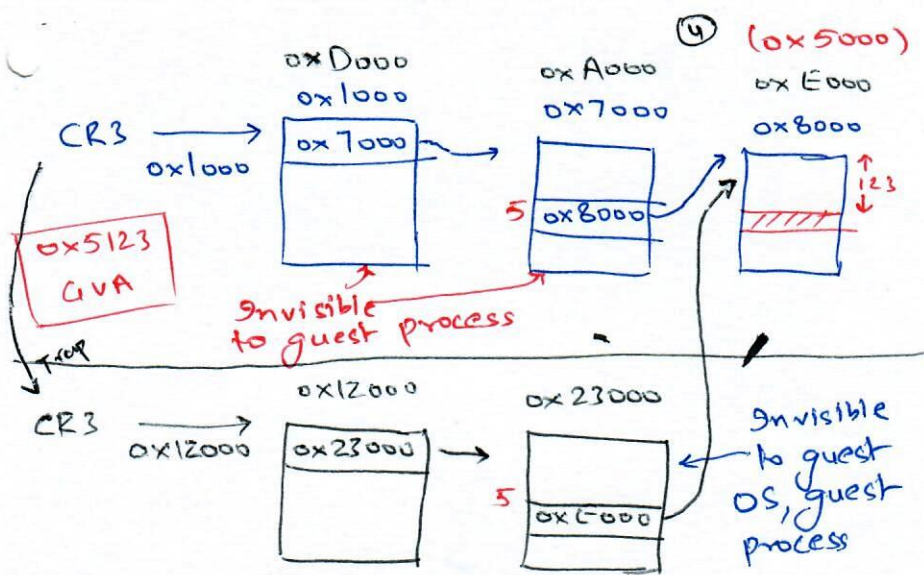 4
(0x5000)
0xD000
0xA000
0xE000
0x1000
0x7000
0x8000
CR3
0x1000
0x7000
5
0x8000
123
0x5123
GVA
Invisible
to guest process
Trap
0x12000
0x23000
CR3
0x12000
0x23000
5
0xE000
Invisible
to guest
OS, guest
process